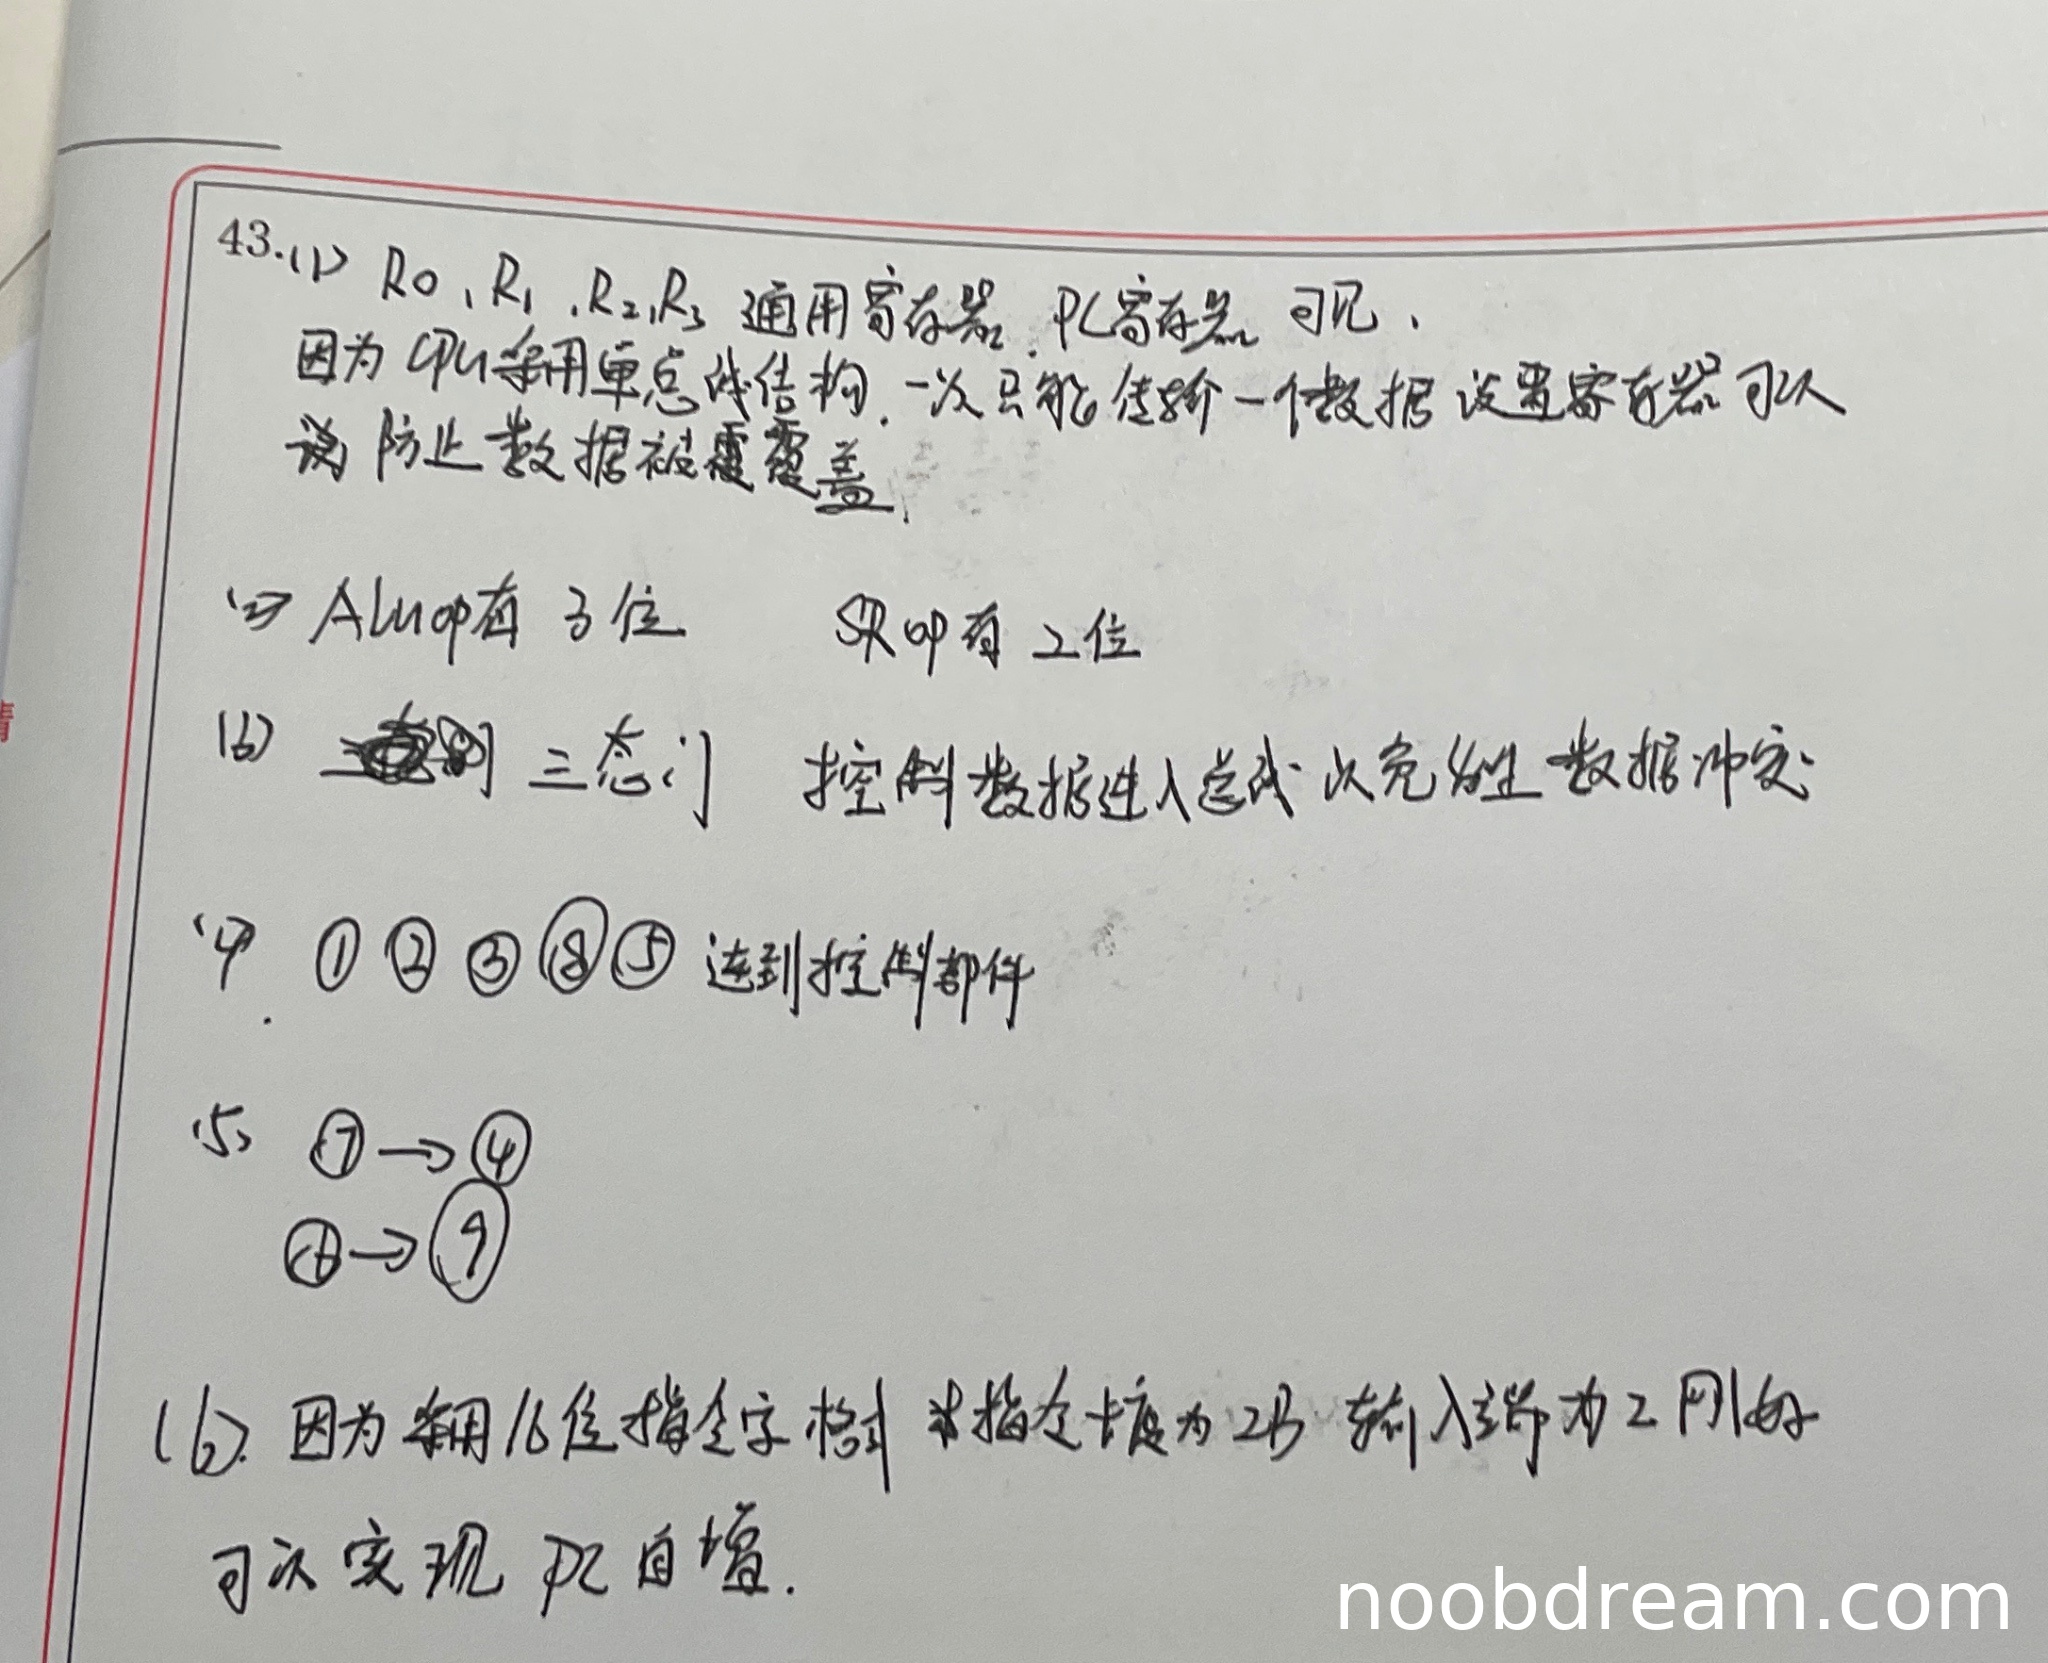 43.(1) R0、R1、R2、R3 通用寄存器、PC寄存器 可见、
因为CPU采用单总线结构、一次只能传输一个数据 设置寄存器可以
防止数据被覆盖.
(2) ALUop有 3位 SRop有 2位
(3) 三态门 控制数据进入总线 以免发生数据冲突
(4) ① ② ③ ⑧ ⑤ 连到控制部件
(5) ⑦→④
→⑨
(6). 因为采用16位指令字格式 指令长度为2B 输入端为2 刚好
可以实现 PC 自增.
情
noobdream.com